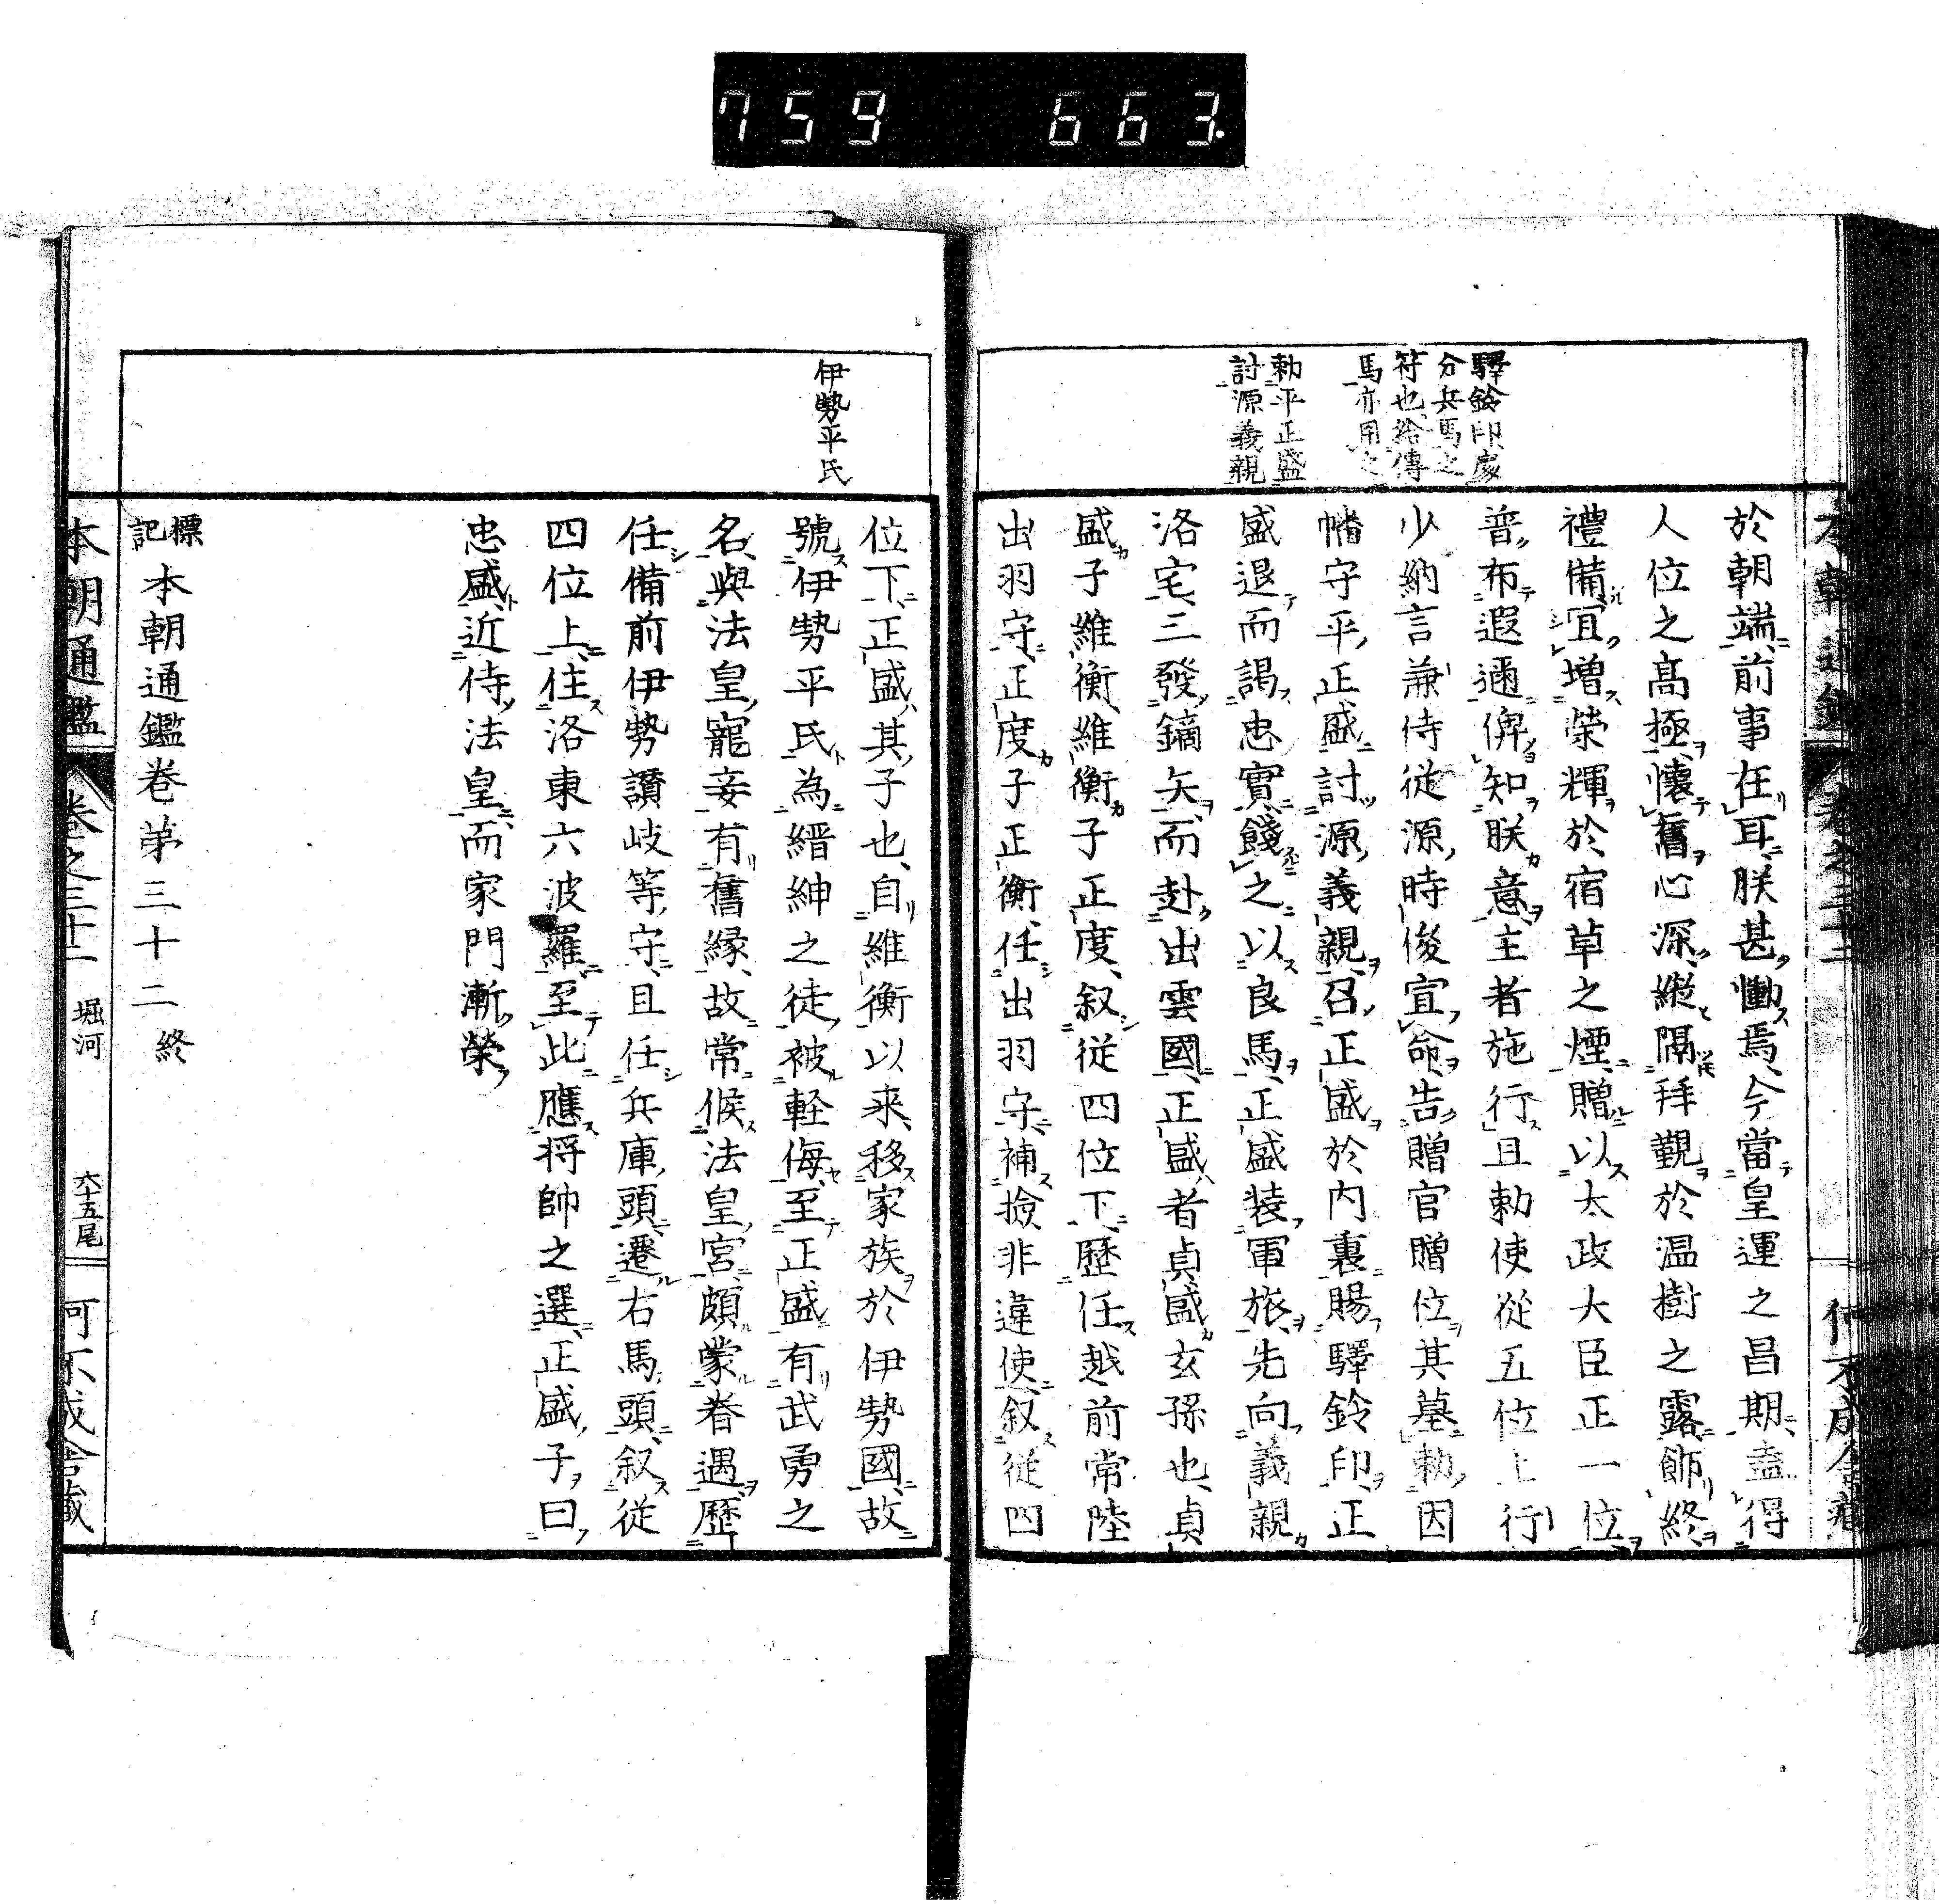 759 663.
驛鈴印處
分兵馬之
符也給傳
馬亦用之
勅平正盛
討源義親
於朝端前事在耳朕甚慟焉今當皇運之昌期盍得
人位之高極懷舊心深縱隔拜覲於温樹之露飾終
禮備宜増榮輝於宿草之煙贈以太政大臣正一位
普布遐邇俾知朕意主者施行且勅使從五位上行
少納言兼侍從源時俊宣命告贈官贈位其墓勅因
幡守平正盛討源義親召正盛於内裏賜驛鈴印正
盛退而謁忠實餞之以良馬正盛装軍旅先向義親
洛宅三發鏑矢而赴出雲國正盛者貞盛玄孫也貞
盛子維衡維衡子正度叙從四位下歴任越前常陸
出羽守正度子正衡任出羽守補撿非違使叙從四
伊勢平氏
位下正盛其子也自維衡以来移家族於伊勢國故
號伊勢平氏為縉紳之徒被軽侮至正盛有武勇之
名與法皇寵妾有舊縁故常候法皇宮頗蒙眷遇歴
任備前伊勢讃岐等守且任兵庫頭遷右馬頭叙從
四位上住洛東六波羅至此應将帥之選正盛子曰
忠盛近侍法皇而家門漸榮
標記 本朝通鑑巻第三十二 終
本朝通鑑 巻之三十二 堀河 六十五尾 可不成舎藏